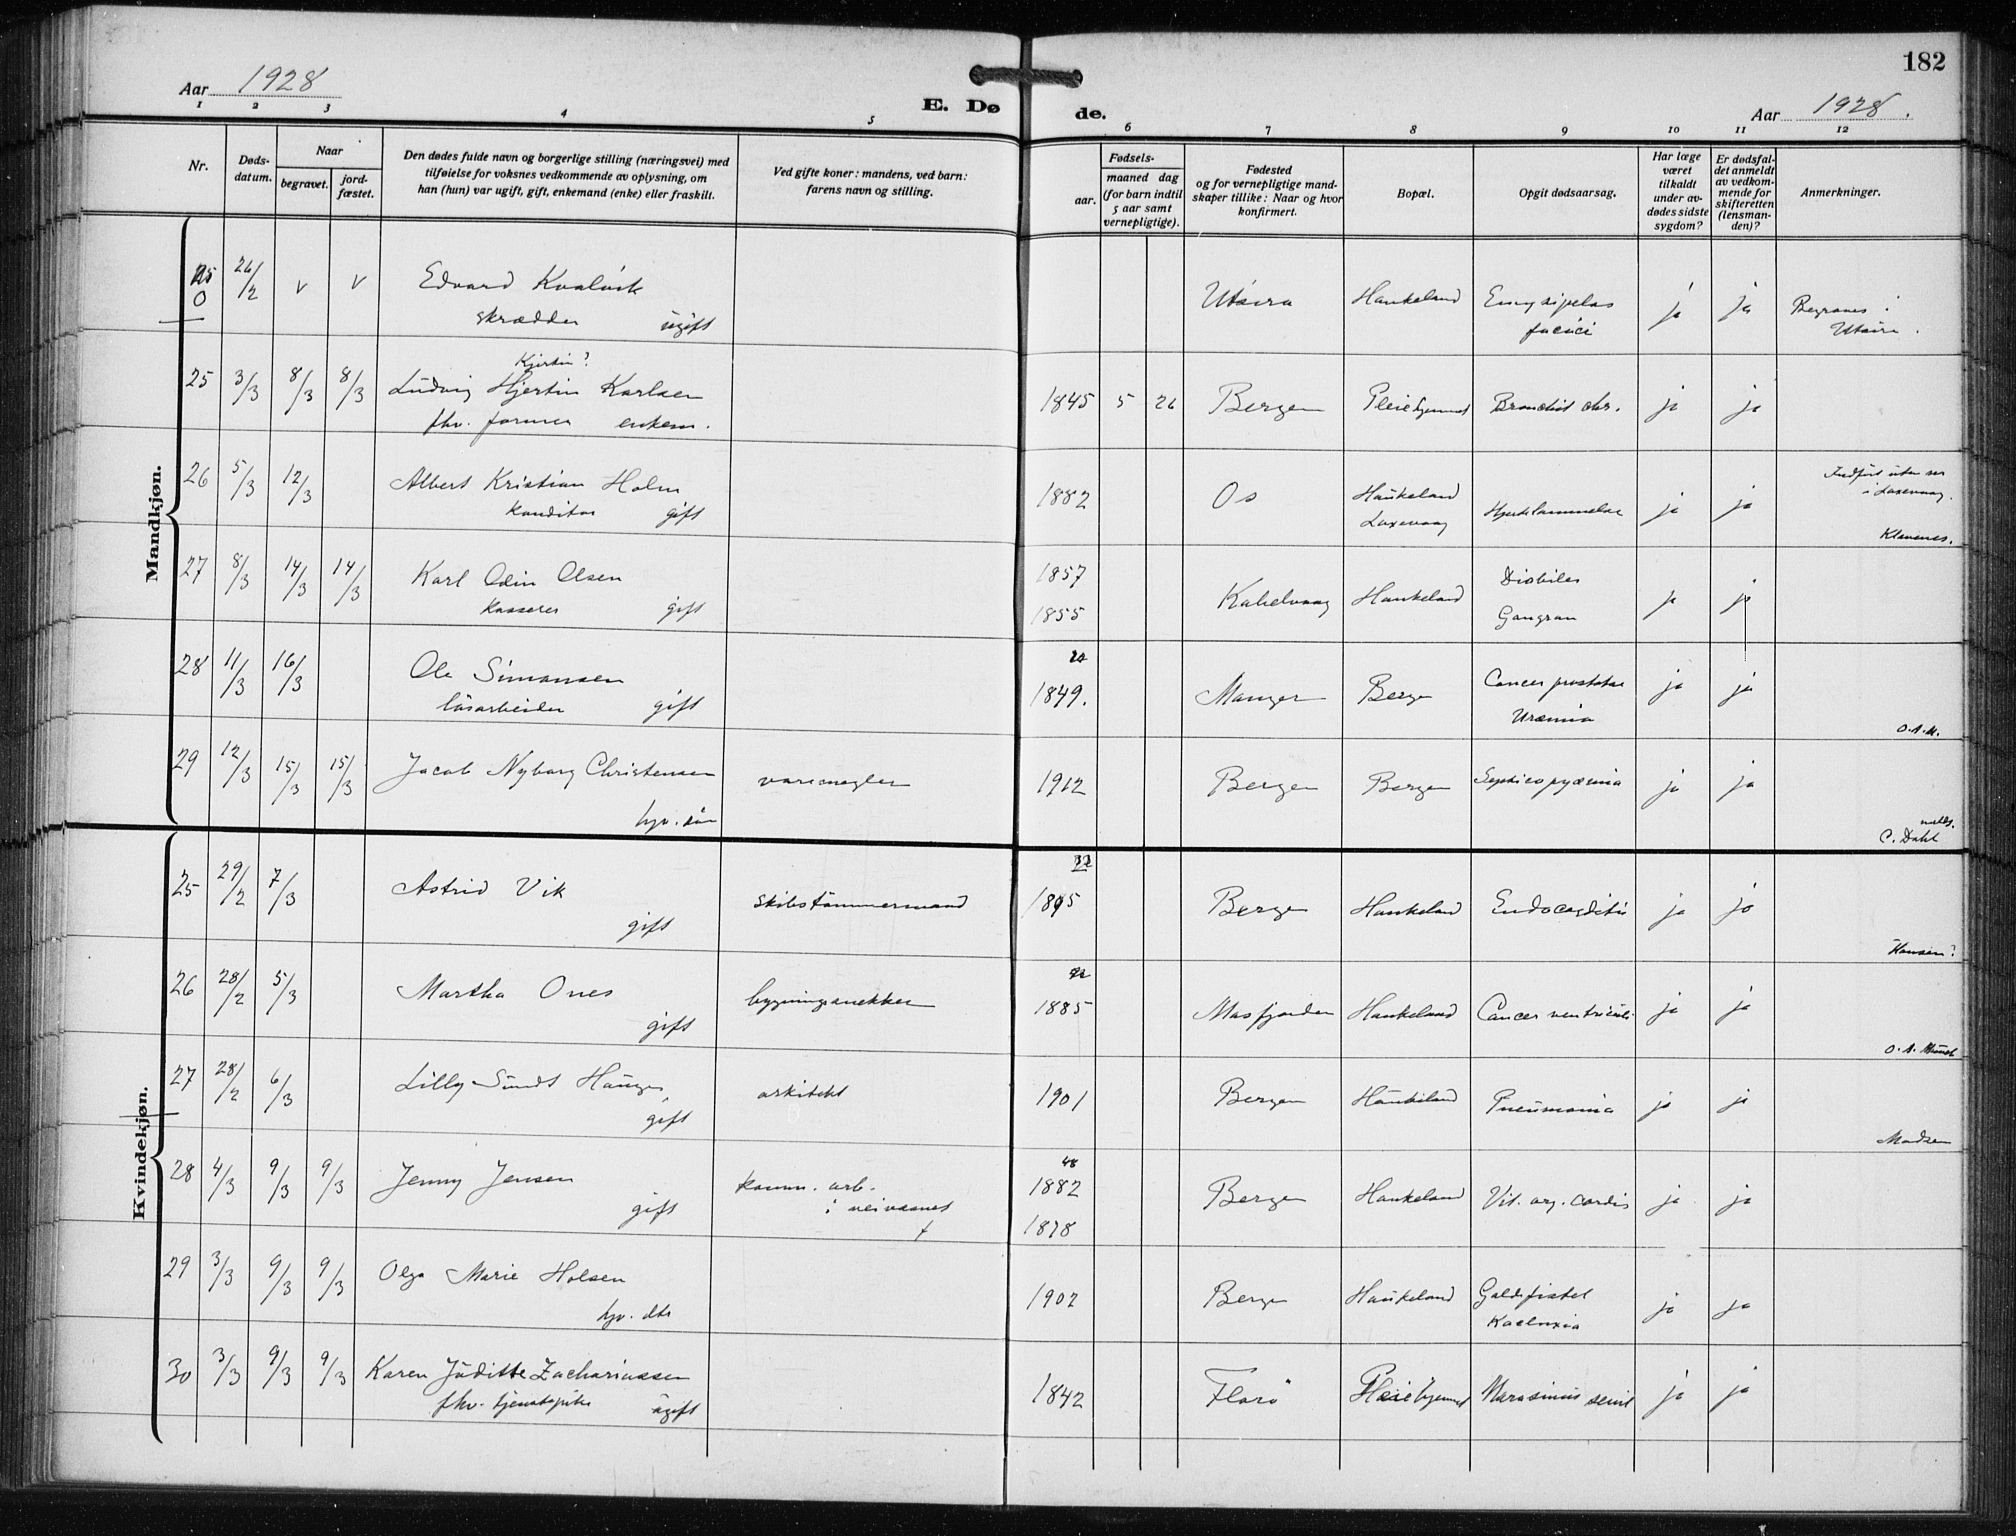 182
Aar 1928
E. Dø
de.
Aar 1928.
1 2 3 4 5 6 7 8 9 10 11 12
Nr.
Døds-
datum.
Naar
begravet.
jord-
fæstet.
Den dødes fulde navn og borgerlige stilling (næringsvei) med
tilføielse for voksnes vedkommende av oplysning, om
han (hun) var ugift, gift, enkemand (enke) eller fraskilt.
Ved gifte koner: mandens, ved barn:
farens navn og stilling.
Fødsels-
aar.
maaned dag
(for barn indtil
5 aar samt
vernepligtige).
Fødested
og for vernepligtige mand-
skaper tillike: Naar og hvor
konfirmert.
Bopæl.
Opgit dødsaarsag.
Har læge
været
tilkaldt
under av-
dødes sidste
sygdom?
Er dødsfal-
det anmeldt
av vedkom-
mende for
skifteretten
(lensman-
den)?
Anmerkninger.
Mandkjøn.
0 26/2 v v Edvard Kvalvik Utsira Haukeland ja ja Begraves i
skrædder ugift Utsira.
Kjertin?
25 3/3 8/3 8/3 Ludvig Hjertin Karlsen 1845 5 26 Bergen Pleiehjemmet Bronchit chr. ja ja
fhv. former enkem.
26 5/3 12/3 Albert Kristian Holm 1882 Os Haukeland Hjertelammelse ja ja
konditor gift Laxevaag
i Laxevaag.
Klavenes.
27 8/3 14/3 14/3 Karl Odin Olsen 1857 Kabelvaag Haukeland Diabetes ja ja
kasserer gift 1855 Gangræn
28 11/3 16/3 Ole Simonsen 1849. Manger Bergen Cancer prostatae ja ja
løsarbeider gift Uræmia
O.A.M.
29 12/3 15/3 15/3 Jacob Nyborg Christensen varemegler 1912 Bergen Bergen Septicopyæmia ja ja
hjv. søn
C. Dahl
Kvindekjøn.
25 29/2 7/3 Astrid Vik skibstømmermand 1895 Bergen Haukeland Endocarditis ja ja
gift
Hansen?
26 28/2 5/3 Martha Ones bygningssnekker 1885 Masfjorden Haukeland Cancer ventriculi ja ja
gift
27 28/2 6/3 Lilly Sundt Hauge, arkitekt 1901 Bergen Haukeland Pneumonia ja ja
gift
Madsen
48
28 4/3 9/3 9/3 Jenny Jensen komm. arb. 1882 Bergen Haukeland Vit. org. cordis ja ja
gift i veivæsnet 1878
29 3/3 9/3 9/3 Olga Marie Holsen 1902 Bergen Haukeland Galdefistel ja ja
hjv. dtr
30 3/3 9/3 9/3 Karen Juditte Zachariassen 1842 Florø Pleiehjemmet Marasmus senil ja ja
fhv. tjenestepike ugift